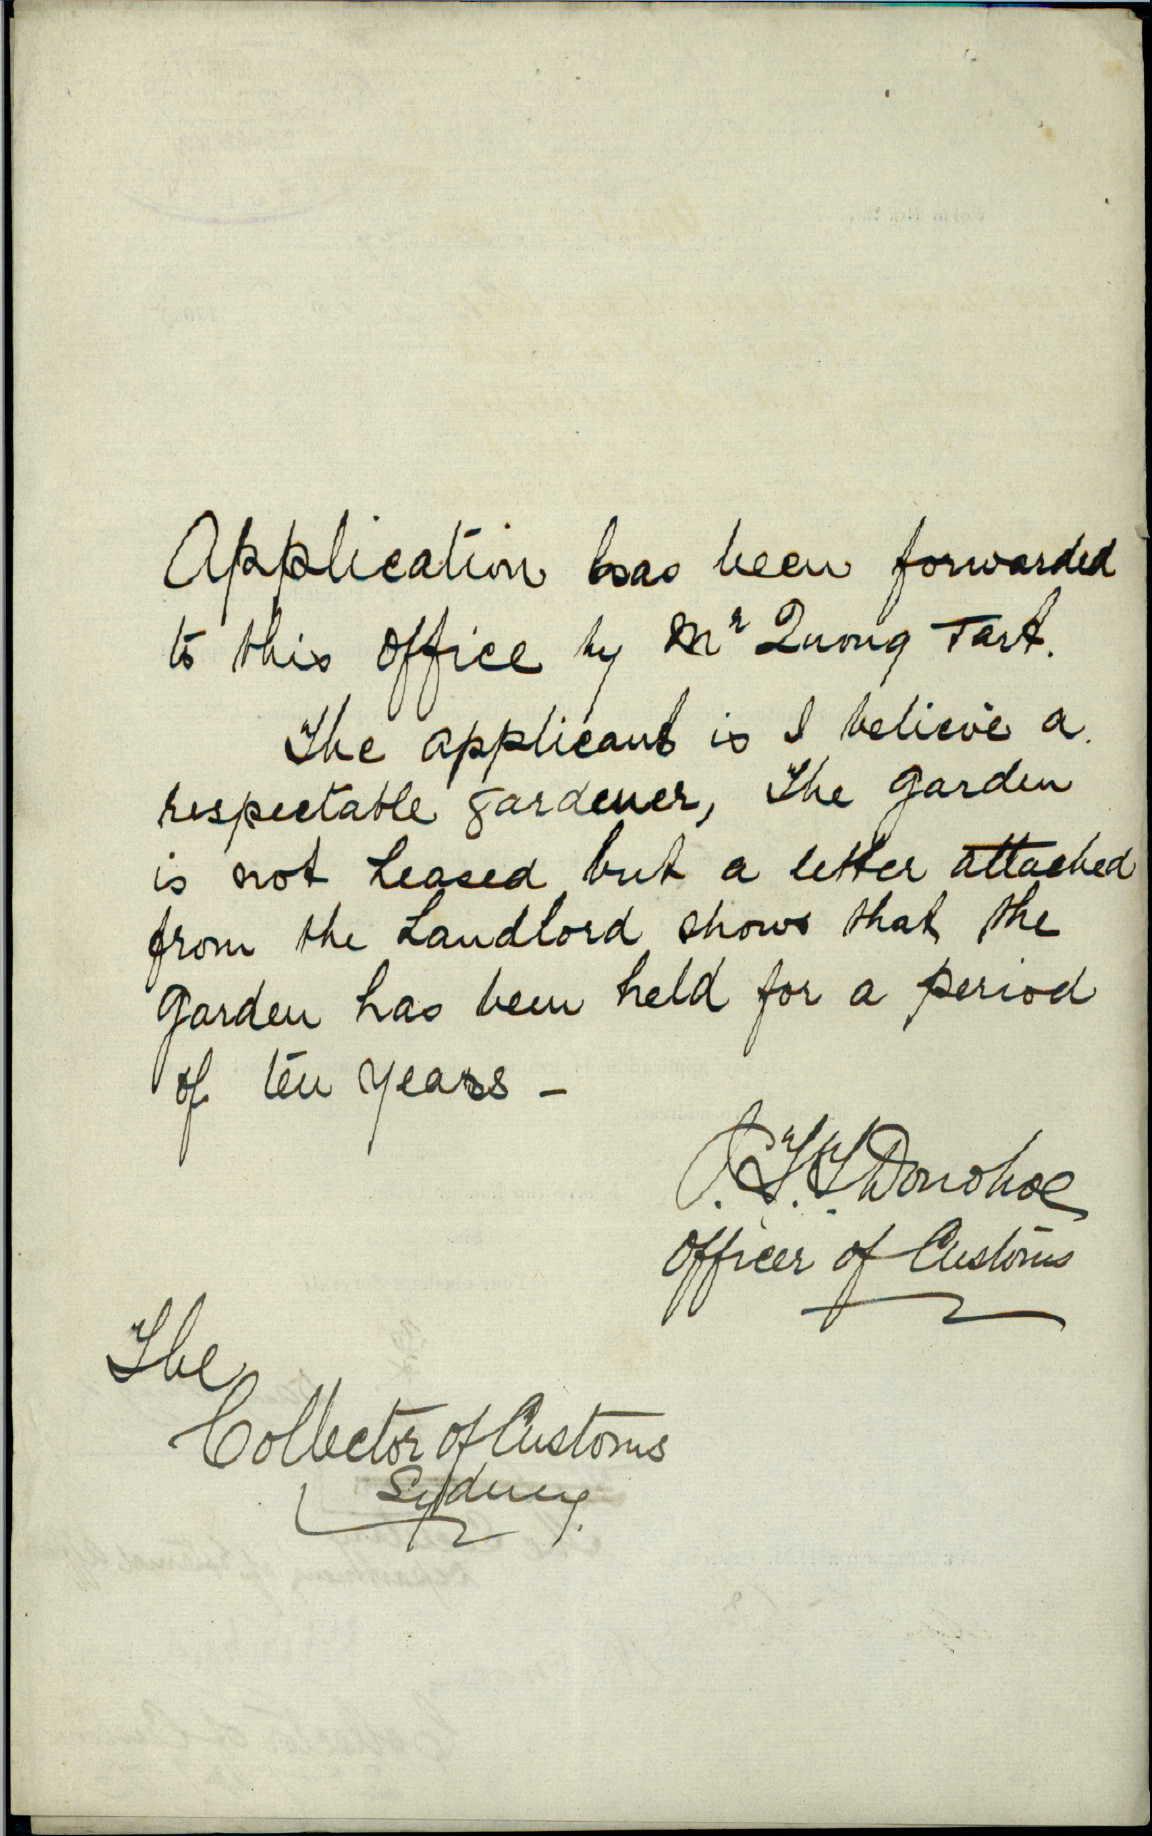 Application has been forwarded
to this office by Mr Quong Tart.
The applicant is I believe a
respectable gardener, The garden
is not Leased but a letter attached
from the Landlord shows that the
Garden has been held for a period
of ten years -
J. T. T. Donohoe
Officer of Customs
The
Collector of Customs
Sydney.